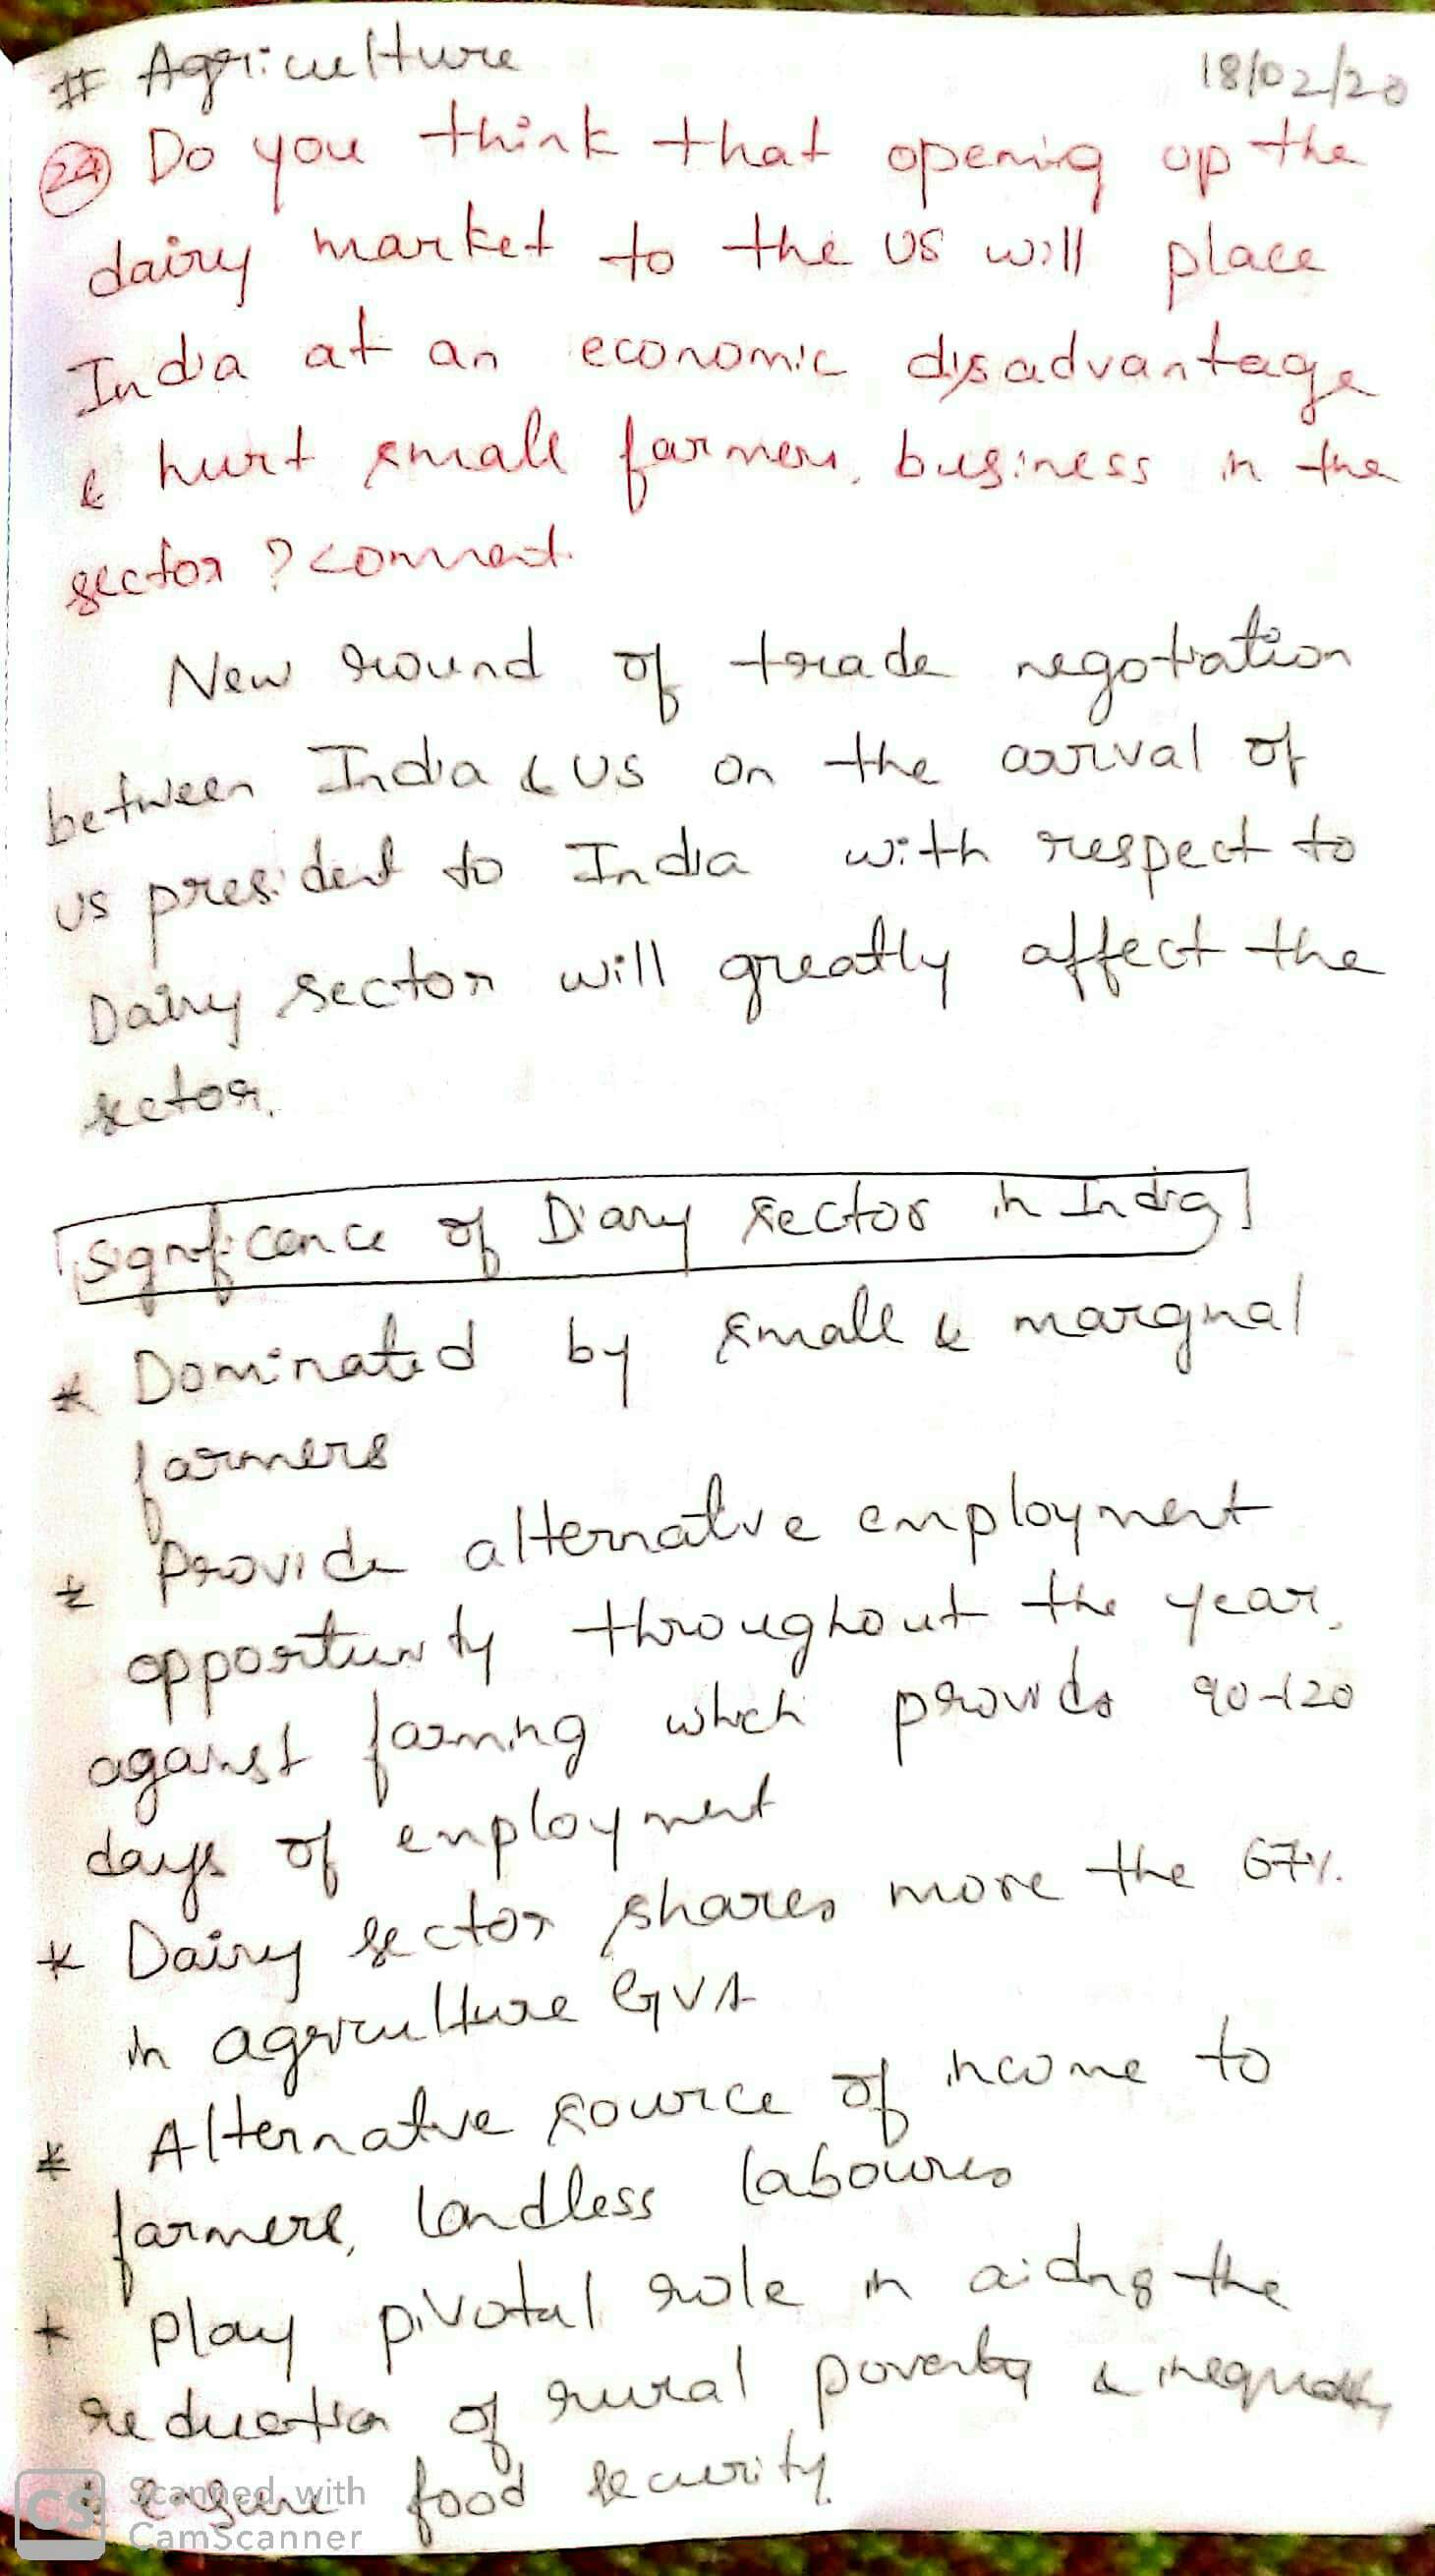 # Agriculture 18/02/20
24 Do you think that opening up the
dairy market to the US will place
India at an economic disadvantage
& hurt small farmers, business in the
sector ? comment.
New round of trade negotiation
between India & US on the arrival of
US president to India with respect to
Dairy sector will greatly affect the
sector.
Significance of Diary sector in India
* Dominated by small & marginal
farmers
* Provide alternative employment
opportunity throughout the year,
against farming which provids 90-120
days of employment
* Dairy sector shares more the 67%
in agriculture GVA
* Alternative source of income to
farmers, landless laboures
* Play pivotal role in aiding the
reduction of rural poverty & inequality
* Ensure food security.
CS Scanned with
CamScanner